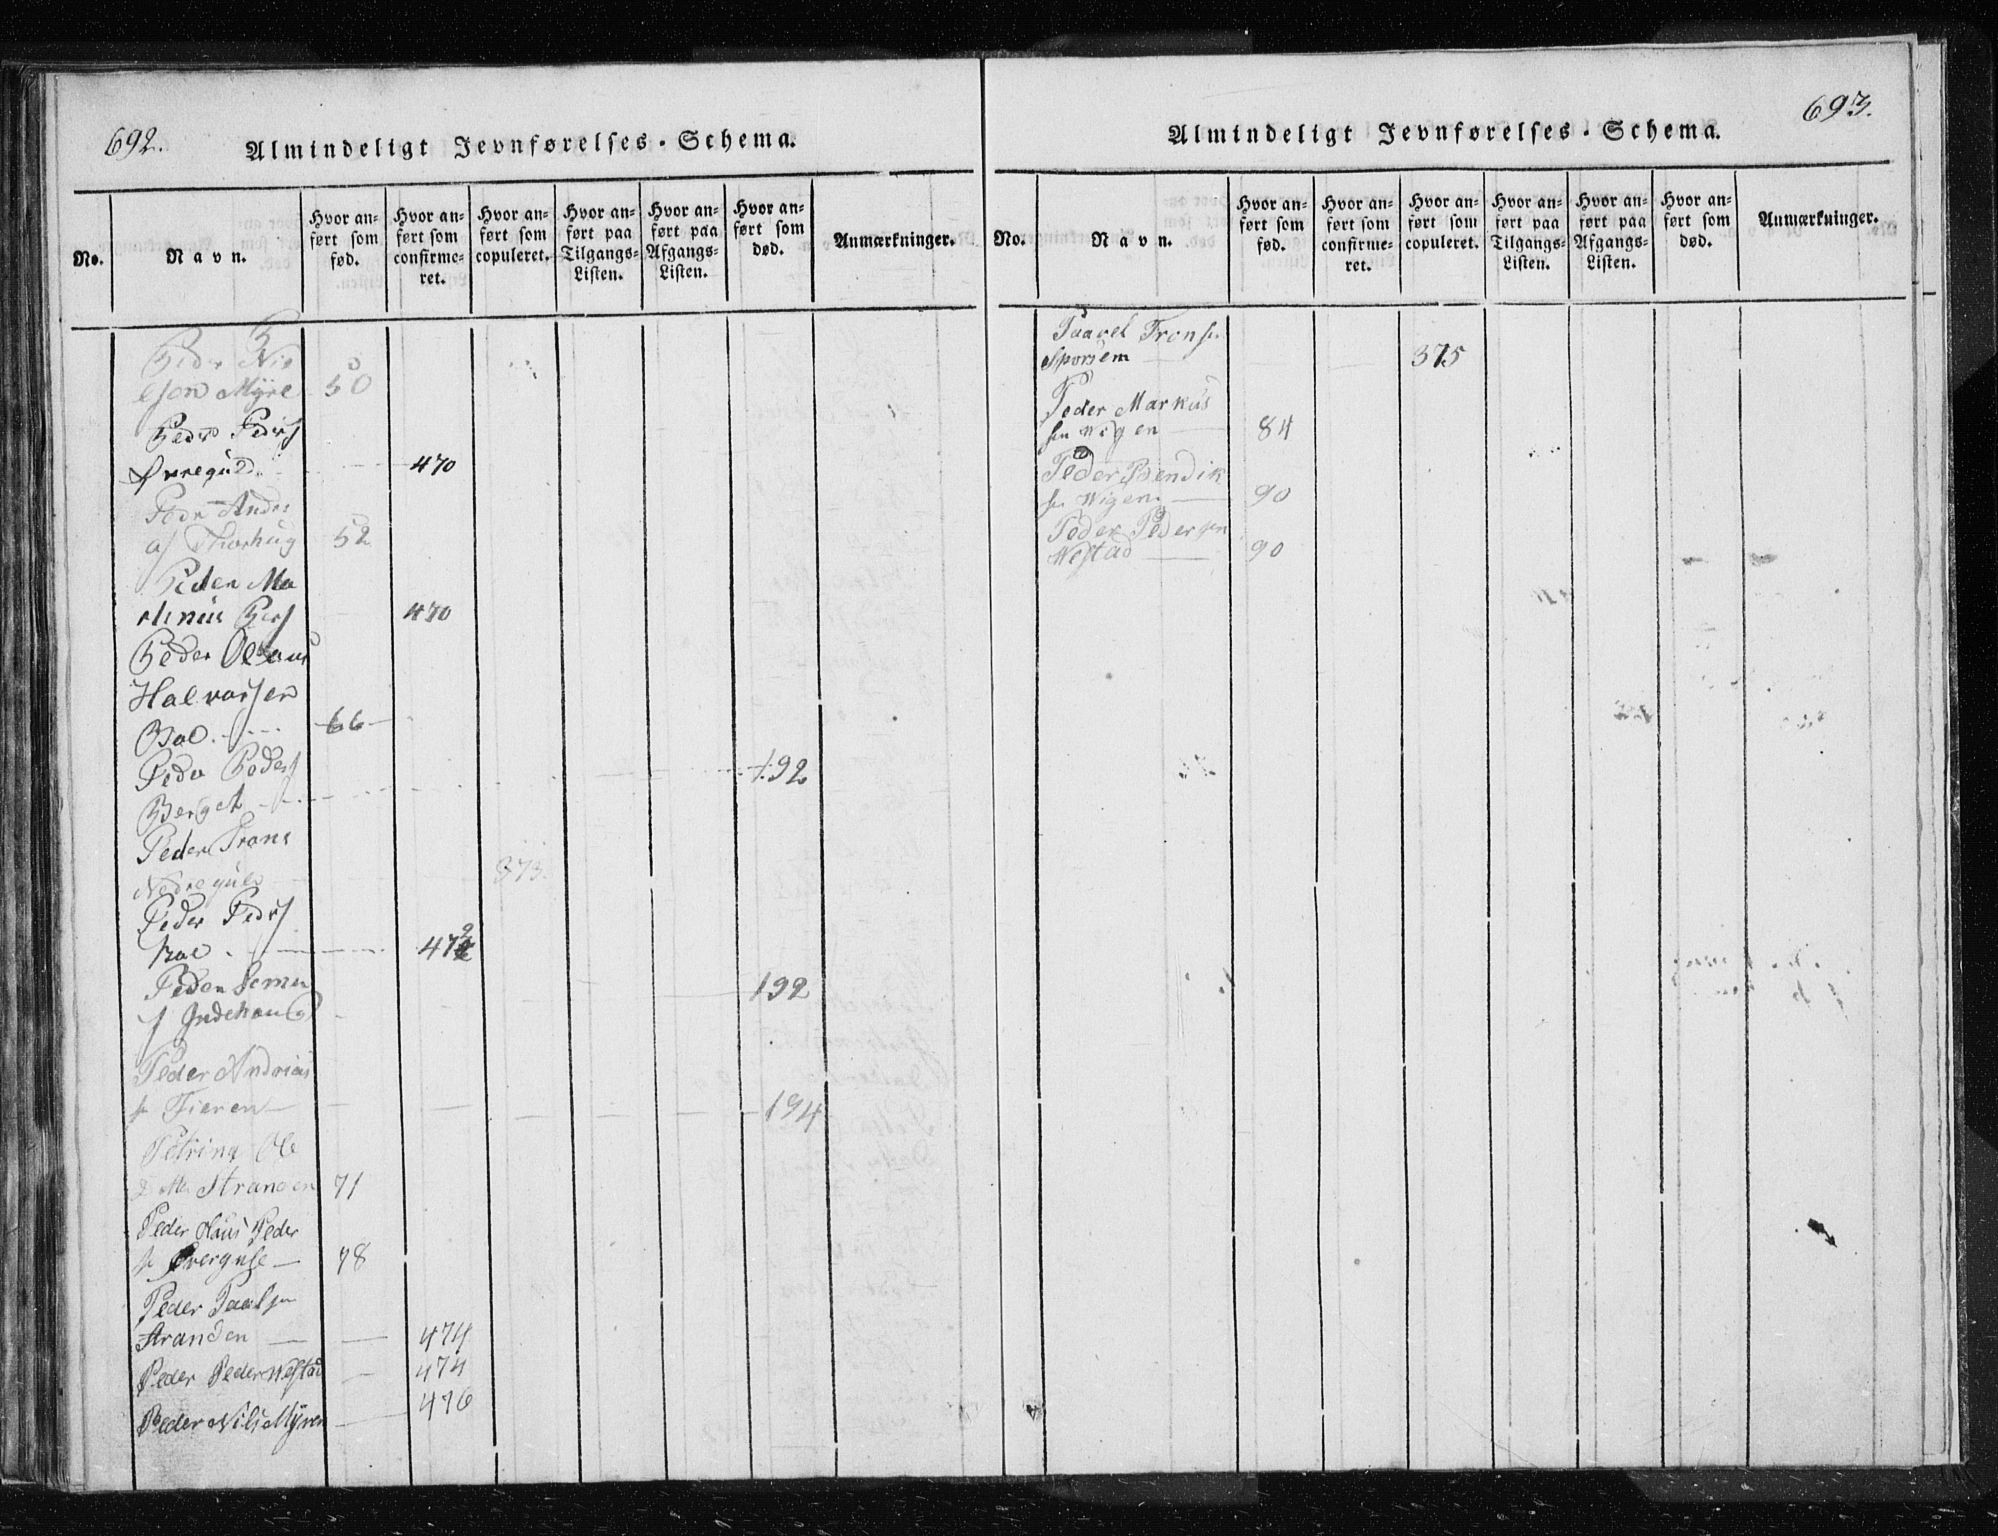 692.
Almindeligt Jevnførelses-Schema.
No.
Navn.
Hvor an-
ført som
fød.
Hvor an-
ført som
confirme-
ret.
Hvor an-
ført som
copuleret.
Hvor an-
ført paa
Tilgangs-
Listen.
Hvor an-
ført paa
Afgangs-
Listen.
Hvor an-
ført som
død.
Anmærkninger.
P
Peder Nie
lson Myre 50
Peder Peders
Øvreguld 470
Peder Andrs
52
Peder Ma
rtinus Pers 470
Peder Olaus
Halvorsen
Bal 66
Peder Peders 192
Berget
Peder Trons
Nedreguld 373.
Peder Peders
Bal 472
Peder
s Indehaug 192
Peder Andrias
sn Fieren 194
Petrina Ole
dotter Stranden 71
Peder Haus Peder
sn 78
Peder Paulsn
Stranden 474
Peder Peder Westad 474
Peder Nils Myren 476
693.
Almindeligt Jevnførelses-Schema.
No.
Navn.
Hvor an-
ført som
fød.
Hvor an-
ført som
confirme-
ret.
Hvor an-
ført som
copuleret.
Hvor an-
ført paa
Tilgangs-
Listen.
Hvor an-
ført paa
Afgangs-
Listen.
Hvor an-
ført som
død.
Anmærkninger.
Paavel Tronsn
Sporsem 375
Peder Markus
sen Wigen 84
Peder Bendik
sn Wigen 90
Peder Pedersen
Westad 90